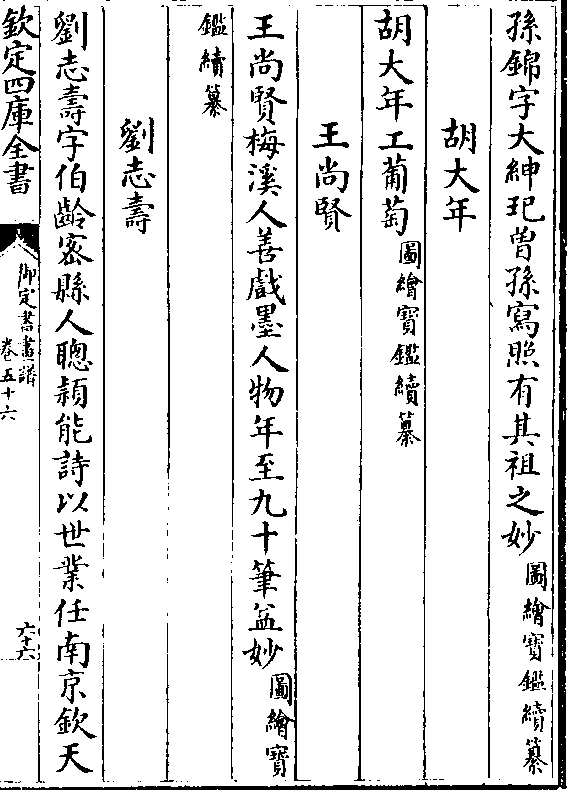 孫錦字大紳玘曾孫寫照有其祖之妙圖繪寶鑑續纂
胡大年
胡大年工葡萄圖繪寶鑑續纂
王尚賢
王尚賢梅溪人善戲墨人物年至九十筆益妙圖繪寶
鑑續纂
劉志壽
劉志壽字伯齡密縣人聰頴能詩以世業任南京欽天
欽定四庫全書
御定書畫譜
卷五十六
六十六